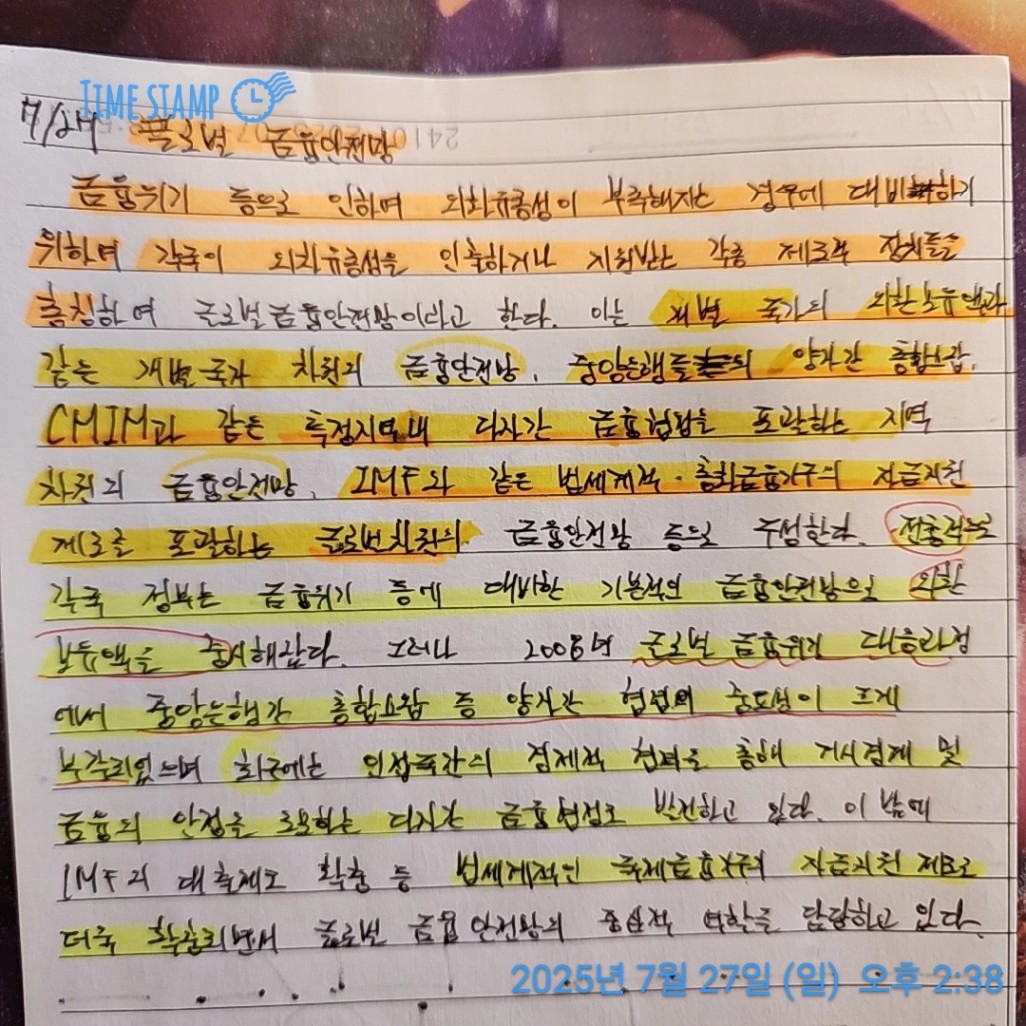 TIME STAMP
7/27 글로벌 금융안전망
금융위기 등으로 인하여 외화유동성이 부족해지는 경우에 대비하기
위하여 각국이 외화유동성을 인출하거나 지원받는 각종 제도적 장치들을
총칭하여 글로벌금융안전망이라고 한다. 이는 개별 국가의 외환보유액과
같은 개별국가 차원의 금융안전망, 중앙은행들의 양자간 통화스왑,
CMIM과 같은 특정지역내 다자간 금융협정을 포괄하는 지역
차원의 금융안전망, IMF와 같은 범세계적·통화금융기구의 자금지원
제도를 포괄하는 글로벌차원의 금융안전망 등으로 구성한다. 전통적으로
각국 정부는 금융위기 등에 대비한 기본적인 금융안전망으로 외환
보유액을 중시해왔다. 그러나 2008년 글로벌 금융위기 대응과정
에서 중앙은행간 통화스왑 등 양자간 협정의 중요성이 크게
부각되었으며 최근에는 인접국간의 경제적 협력을 통해 거시경제 및
금융의 안정을 도모하는 다자간 금융협정도 발전하고 있다. 이 밖에
IMF의 대출제도 확충 등 범세계적인 국제금융기구의 자금지원 제도도
더욱 확충되면서 글로벌 금융안전망의 중심적 역할을 담당하고 있다.
2025년 7월 27일 (일) 오후 2:38